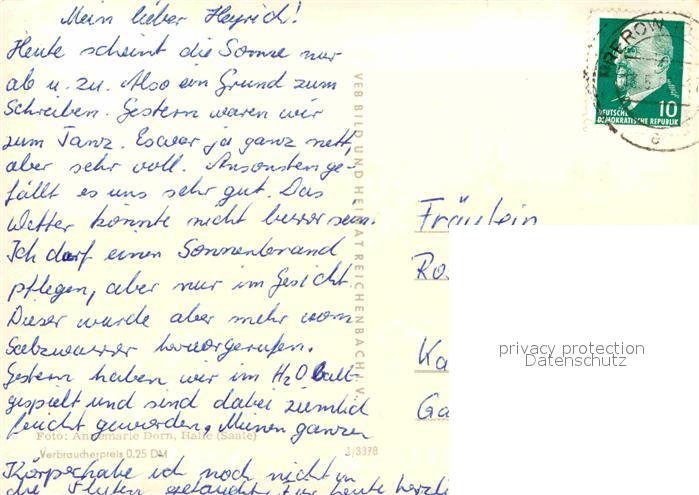 Mein lieber Heyrich!
Heute scheint die Sonne nur
ab u. zu. Also ein Grund zum
Schreiben. Gestern waren wir
zum Tanz. Es war ja ganz nett,
aber sehr voll. Ansonsten ge-
fällt es uns sehr gut. Das
Wetter könnte nicht besser sein.
Ich darf einen Sonnenbrand
pflegen, aber nur im Gesicht.
Dieser wurde aber mehr vom
Salzwasser hervorgerufen.
Gestern haben wir im H2O Ball
gespielt und sind dabei ziemlich
feucht geworden. Meinen ganzen
Körper habe ich noch nicht in
die Fluten getaucht. Für heute herzli
Foto: Annemarie Dorn, Halle (Saale)
Verbraucherpreis 0,25 DM
J/3378
VEB BILD UND HEIMAT REICHENBACH I. V.
PREROW
10
DEUTSCHE
DEMOKRATISCHE REPUBLIK
Fräulein
Ro
Ka
Ga
privacy protection
Datenschutz